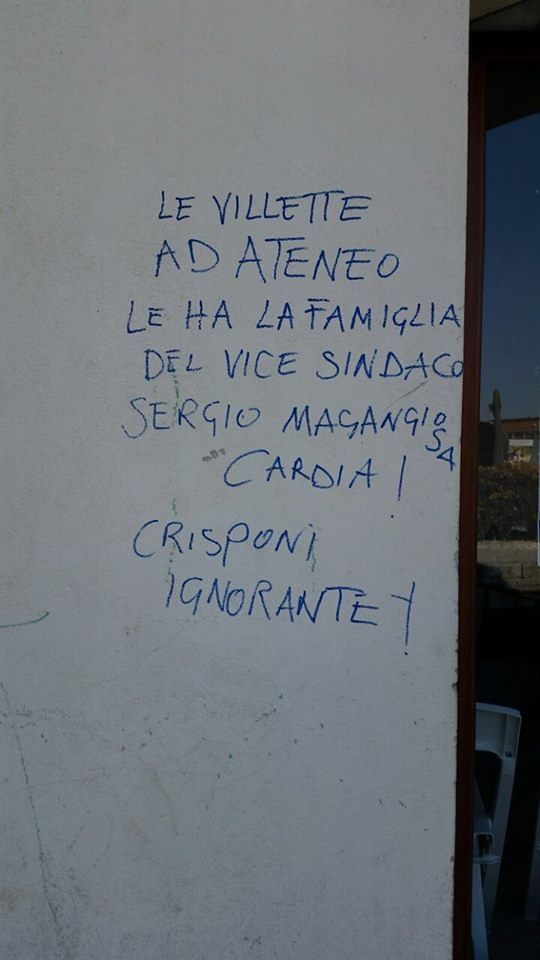 LE VILLETTE
AD ATENEO
LE HA LA FAMIGLIA
DEL VICE SINDACO
SERGIO MAGANGIOSA
CARDIA!
CRISPONI
IGNORANTE!